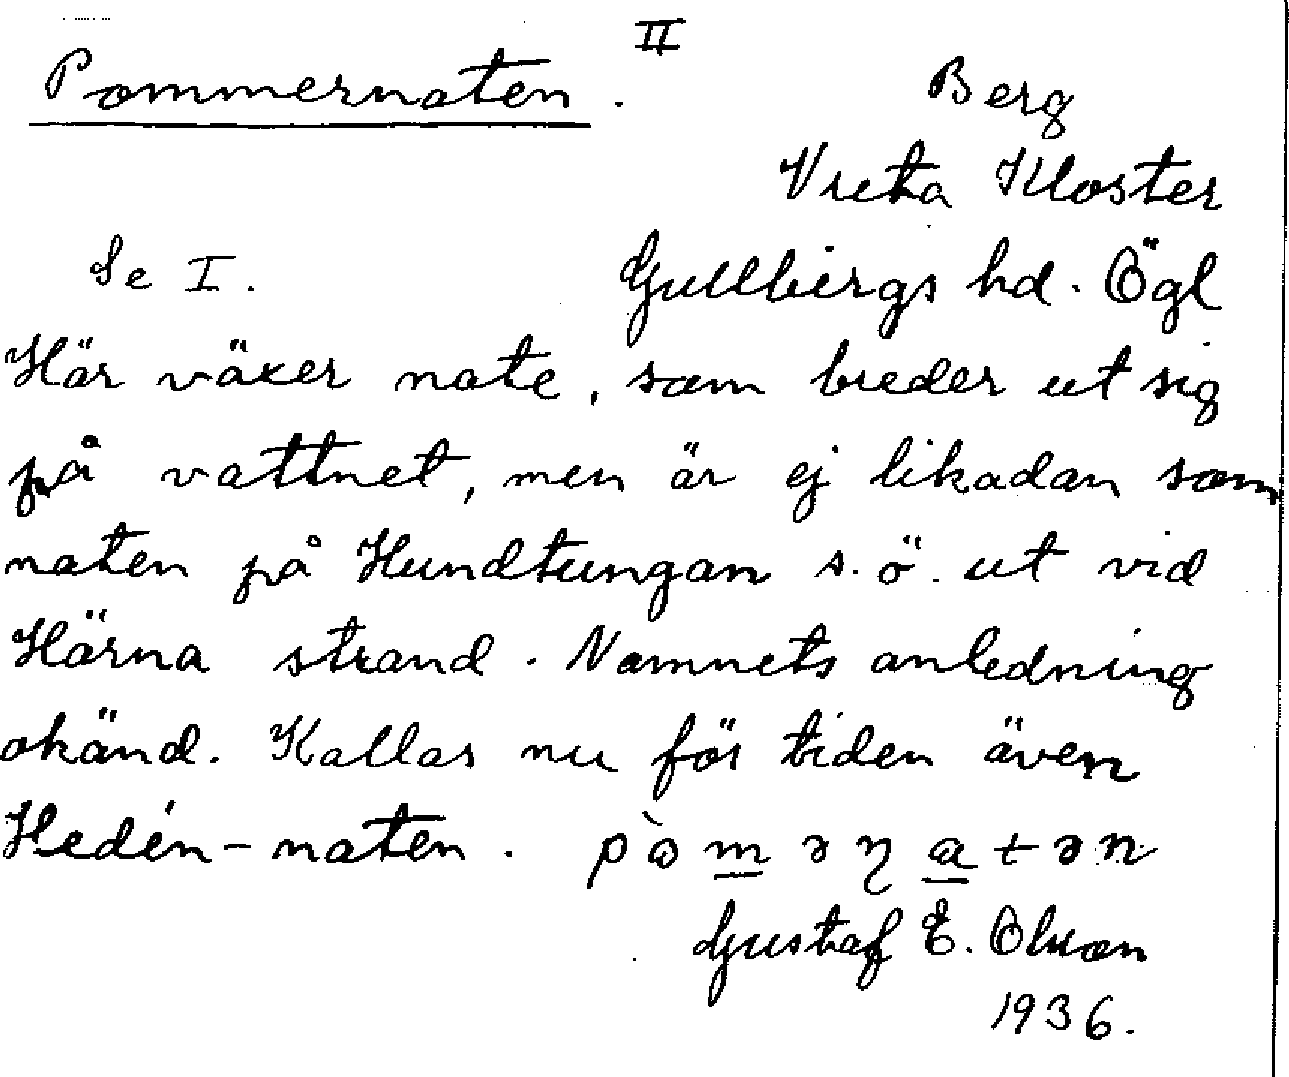 II
Pommernaten. Berg
Vreta Kloster
Se I. Gullbergs hd. Ögl
Här växer nate, som breder ut sig
på vattnet, men är ej likadan som
naten på Hundtungan s.ö. ut vid
Härna strand. Namnets anledning
okänd. Kallas nu för tiden även
Hedén-naten.
Gustaf E. Olson
1936.